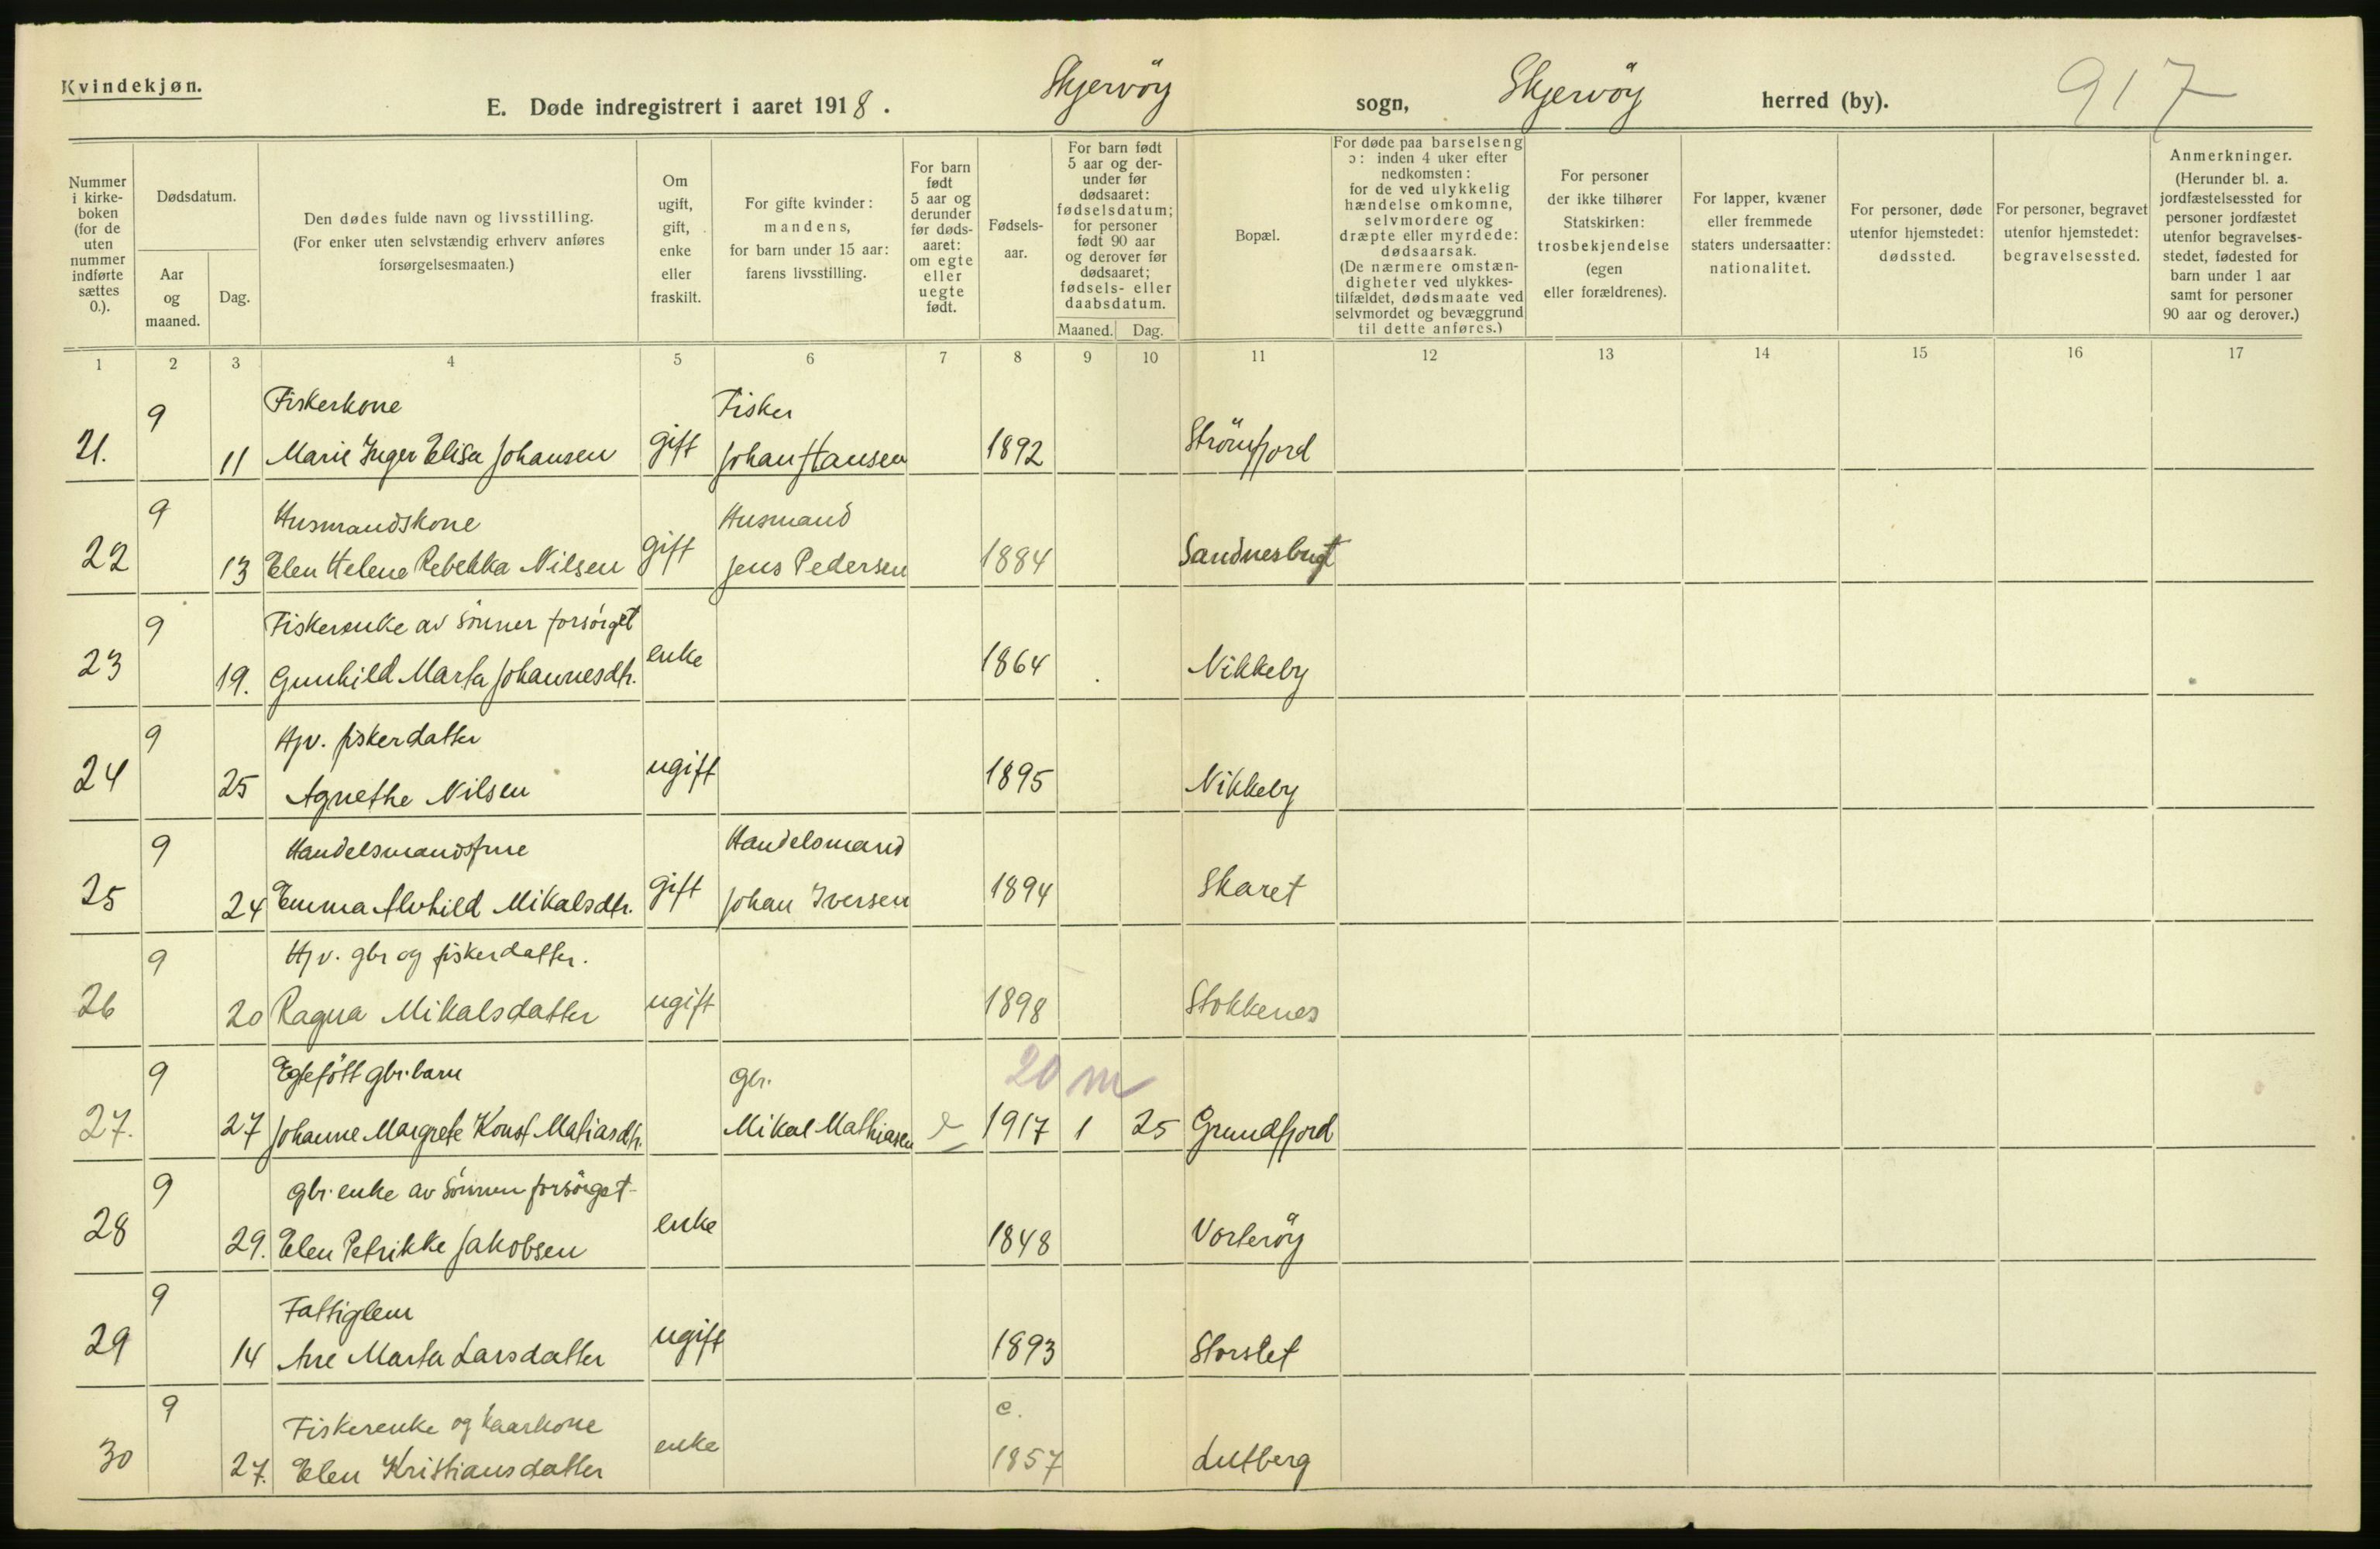 Kvindekjøn.
E. Døde indregistrert i aaret 1918. Skjervöy sogn, Skjervöy herred (by). 917
Nummer i kirke-boken (for de uten nummer indførte sættes 0.).
Dødsdatum.
Aar og maaned.
Dag.
Den dødes fulde navn og livsstilling.
(For enker uten selvstændig erhverv anføres forsørgelsesmaaten.)
Om ugift, gift, enke eller fraskilt.
For gifte kvinder: mandens, for barn under 15 aar: farens livsstilling.
For barn født 5 aar og derunder før døds-aaret: om egte eller uegte født.
Fødsels-aar.
For barn født 5 aar og der-under før dødsaaret: fødselsdatum; for personer født 90 aar og derover før dødsaaret; fødsels- eller daabsdatum.
Maaned. Dag.
Bopæl.
For døde paa barselseng ɔ: inden 4 uker efter nedkomsten: for de ved ulykkelig hændelse omkomne, selvmordere og dræpte eller myrdede: dødsaarsak. (De nærmere omstæn-digheter ved ulykkes-tilfældet, dødsmaate ved selvmordet og bevæggrund til dette anføres.)
For personer der ikke tilhører Statskirken: trosbekjendelse (egen eller forældrenes).
For lapper, kvæner eller fremmede staters undersaatter: nationalitet.
For personer, døde utenfor hjemstedet: dødssted.
For personer, begravet utenfor hjemstedet: begravelsessted.
Anmerkninger. (Herunder bl. a. jordfæstelsessted for personer jordfæstet utenfor begravelses-stedet, fødested for barn under 1 aar samt for personer 90 aar og derover.)
1 2 3 4 5 6 7 8 9 10 11 12 13 14 15 16 17
9 Fiskerkone Fisker
21. 11 Marie Inger Elisa Johansen gift Johan Hansen 1892 Strömfjord
9 Husmandskone Husmand
22 13 Elen Helene Rebekka Nilsen gift Jens Pedersen 1884 Sandnesbugt
9 Fiskerenke av sönner forsörget
23 19. Gunhild Marta Johannesdtr. enke 1864 Nikkeby
9 Hjv. fiskerdatter
24 25 Agnethe Nilsen ugift 1895 Nikkeby
9 Handelsmandsfrue Handelsmand
25 24 Emma Alvhild Mikalsdtr. gift Johan Iversen 1894 Skaret
9 Hjv. gbr og fiskerdatter.
26 20 Ragna Mikalsdatter ugift 1898 Stokkenes
9 Egtefött gbr. barn gbr. 20 m
27. 27 Johanne Margrete Konst Matiasdtr. Mikal Mathiasen e 1917 1 25 Grundfjord
9 gbr. enke av sönnen forsörget
28 29. Elen Petrikke Jakobsen enke 1848 Vorteröy
9 Fattiglem
29 14 Ane Marta Larsdatter ugift 1893 Storslet
9 Fiskerenke og kaarkone c.
30 27. Elen Kristiansdatter enke 1857 Lutberg